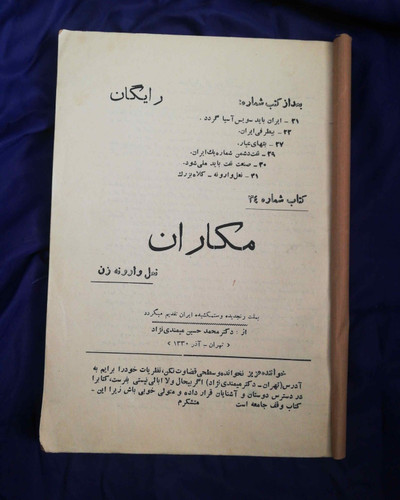 رایگان
بعد از کتب شماره:
۲۱ - ایران باید سویس آسیا گردد .
۲۳ - بیطرفی ایران.
۲۷ - بتهای عیار.
۲۹ - نفت دشمن شماره یك ایران.
۳۰ - صنعت نفت باید ملی شود.
۳۱ - نعل وارونه - کلاه بزرك
کتاب شماره ۳٤
مکاران
نعل وارونه زن
بملت رنجدیده وستمکشیده ایران تقدیم میگردد
از : دکتر محمد حسین میمندی نژاد
« تهران - آذر ۱۳۳۰ »
خواننده عزیز نخوانده و سطحی قضاوت نکن، نظریات خود را برایم به
آدرس (تهران - دکتر میمندی نژاد) اگر بیحال ولاابالی نیستی بفرست، کتابرا
در دسترس دوستان و آشنایان قرار داده و متولی خوبی باش زیرا این -
کتاب وقف جامعه است متشکرم